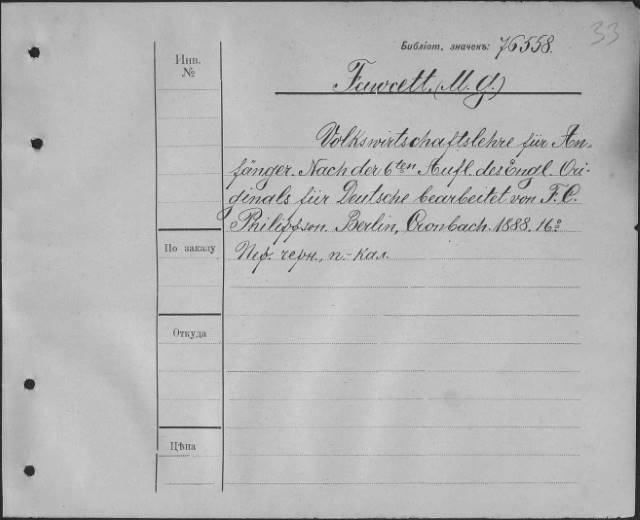 33
Библіот. значекъ: 76558.
Инв.
№
Fawcett. (M. G.)
Volkswirtschaftslehre für An-
fänger. Nach der 6ten Aufl. des Engl. Ori-
ginals für Deutsche bearbeitet von F. C.
Philippson. Berlin, Cronbach. 1888. 16°
По заказу
Пер. черн., п.-кал.
Откуда
Цѣна